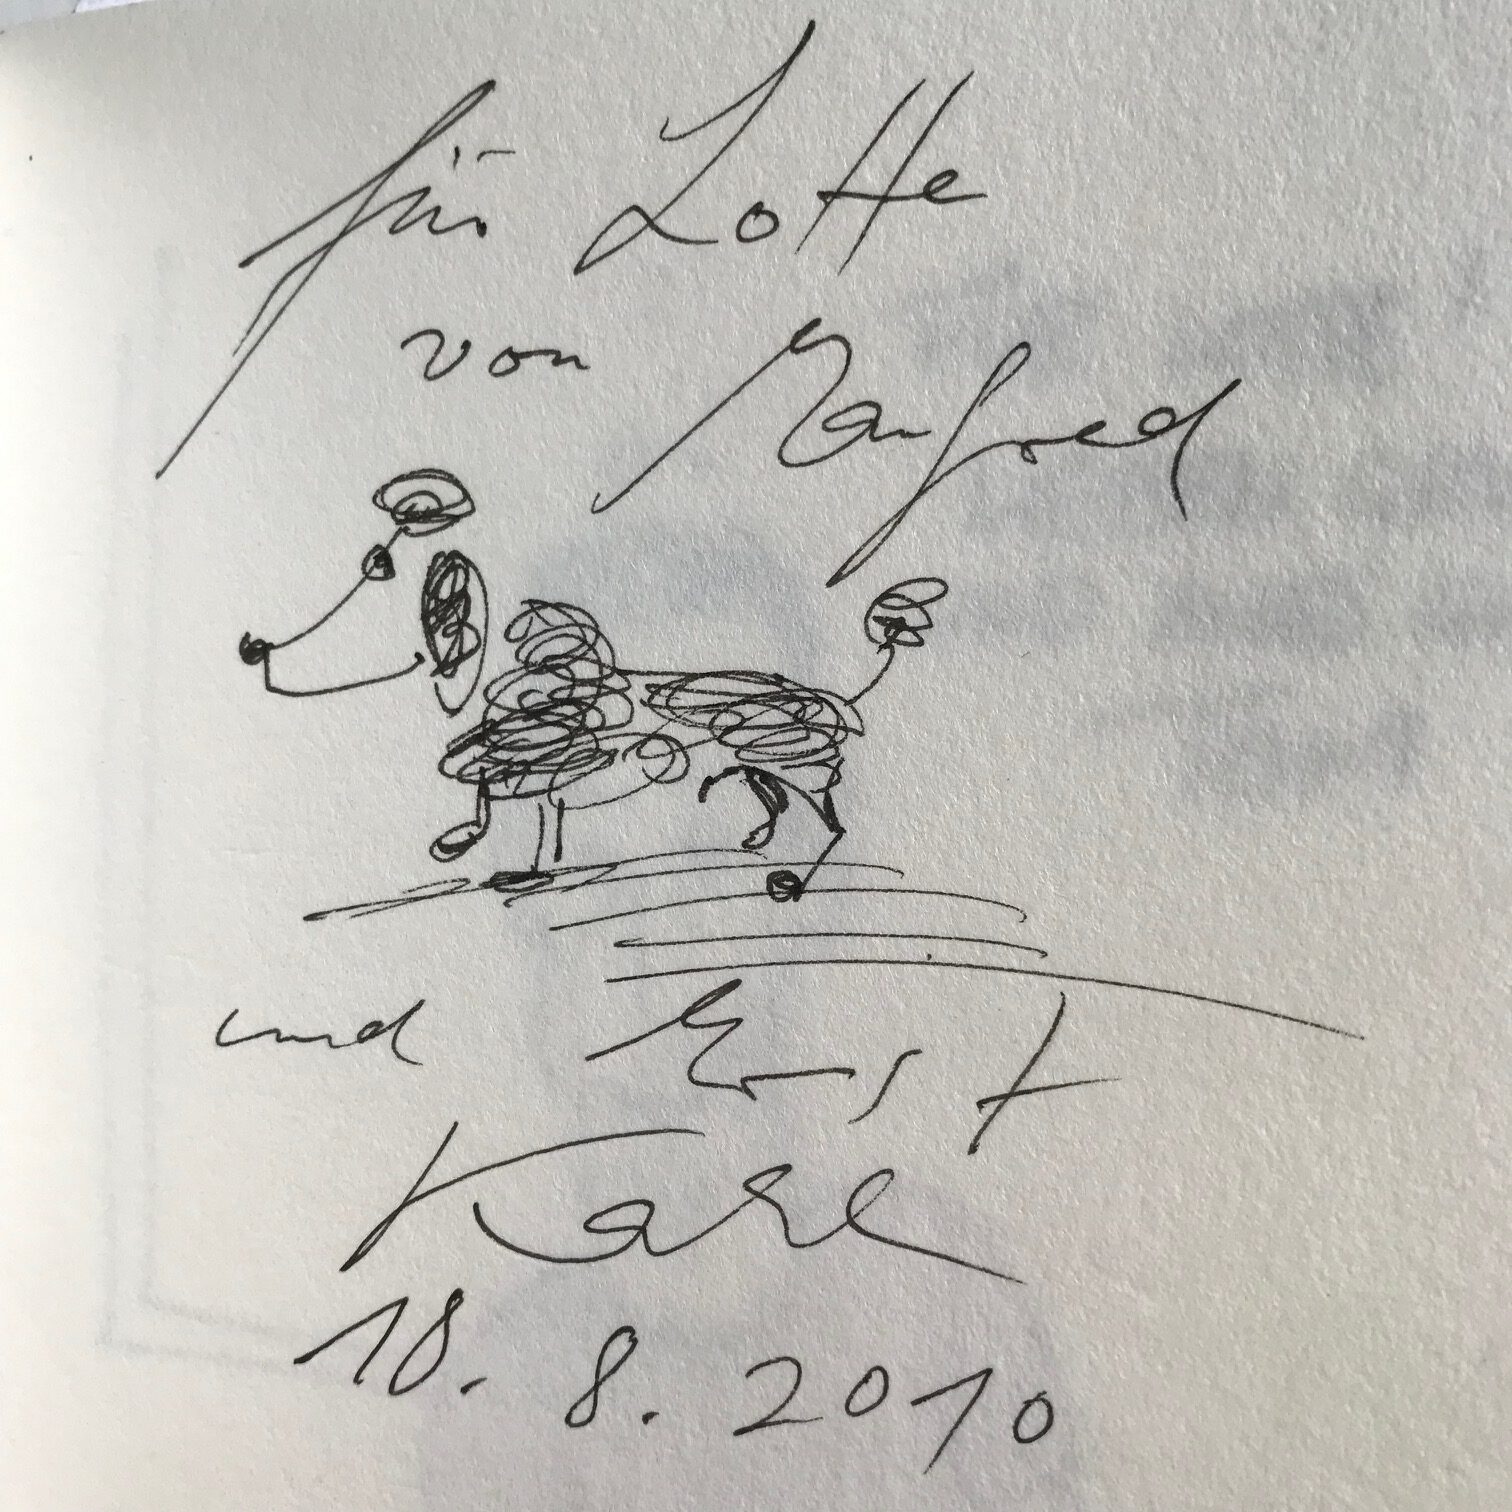 für Lotte
von Manfred
und Ernst
Karl
18. 8. 2010